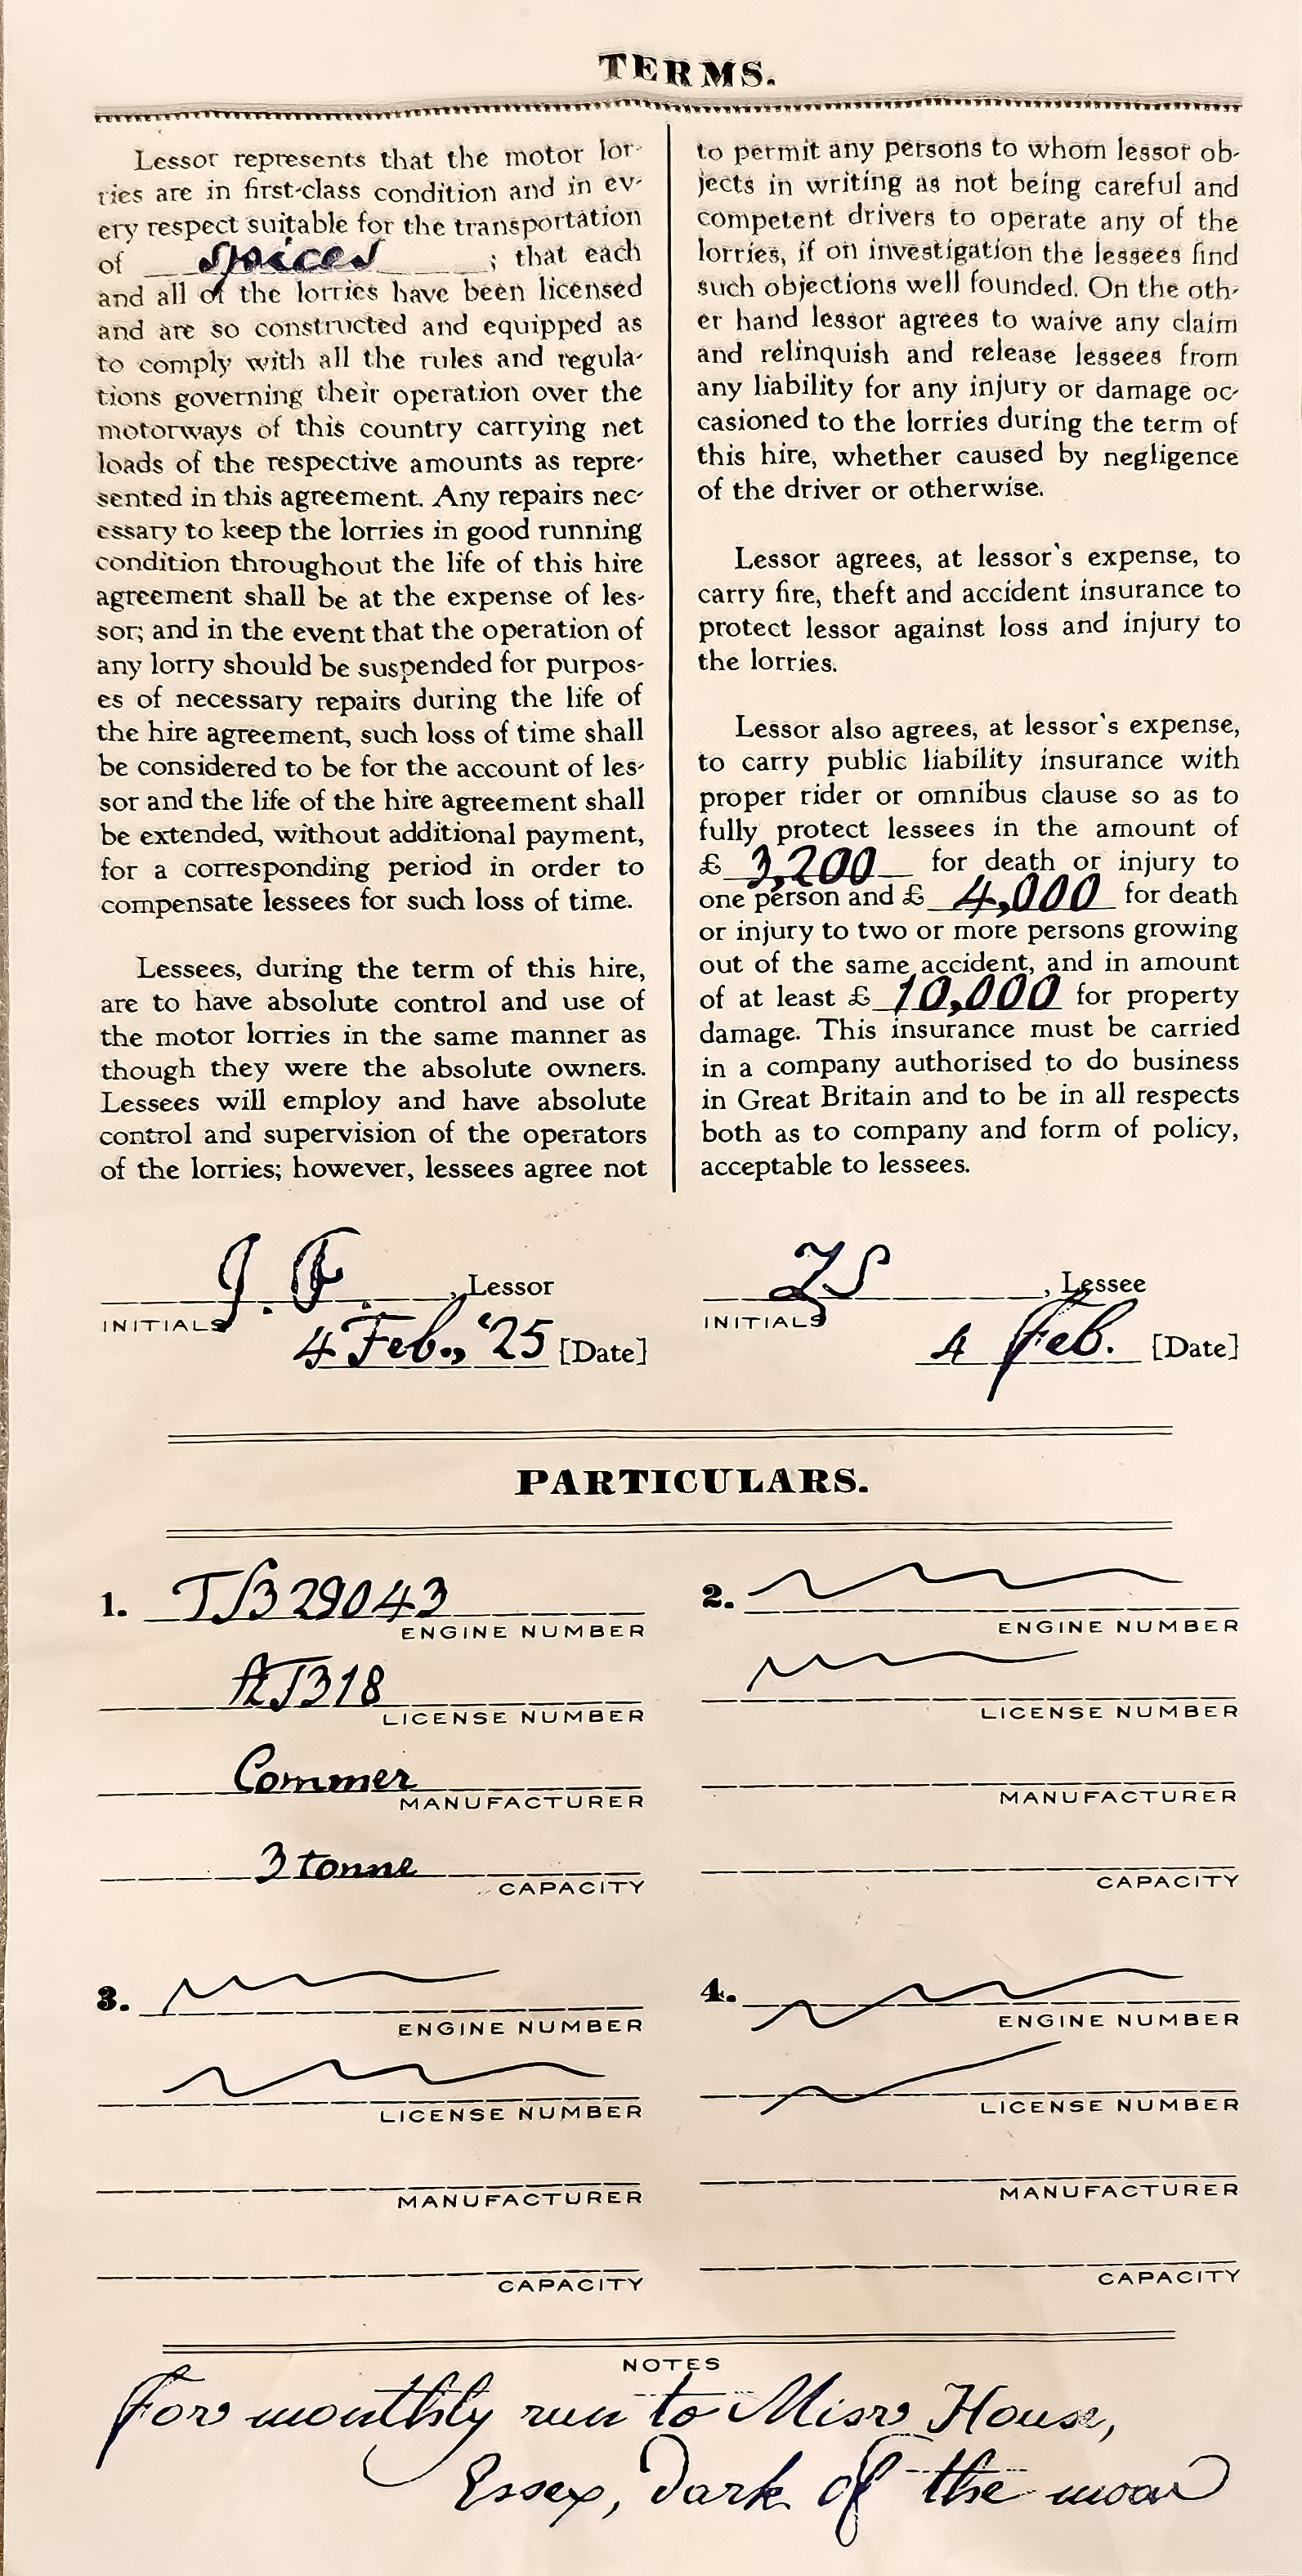 TERMS.
Lessor represents that the motor lor-
ries are in first-class condition and in ev-
ery respect suitable for the transportation
of spices ; that each
and all of the lorries have been licensed
and are so constructed and equipped as
to comply with all the rules and regula-
tions governing their operation over the
motorways of this country carrying net
loads of the respective amounts as repre-
sented in this agreement. Any repairs nec-
essary to keep the lorries in good running
condition throughout the life of this hire
agreement shall be at the expense of les-
sor; and in the event that the operation of
any lorry should be suspended for purpos-
es of necessary repairs during the life of
the hire agreement, such loss of time shall
be considered to be for the account of les-
sor and the life of the hire agreement shall
be extended, without additional payment,
for a corresponding period in order to
compensate lessees for such loss of time.
Lessees, during the term of this hire,
are to have absolute control and use of
the motor lorries in the same manner as
though they were the absolute owners.
Lessees will employ and have absolute
control and supervision of the operators
of the lorries; however, lessees agree not
to permit any persons to whom lessor ob-
jects in writing as not being careful and
competent drivers to operate any of the
lorries, if on investigation the lessees find
such objections well founded. On the oth-
er hand lessor agrees to waive any claim
and relinquish and release lessees from
any liability for any injury or damage oc-
casioned to the lorries during the term of
this hire, whether caused by negligence
of the driver or otherwise.
Lessor agrees, at lessor's expense, to
carry fire, theft and accident insurance to
protect lessor against loss and injury to
the lorries.
Lessor also agrees, at lessor's expense,
to carry public liability insurance with
proper rider or omnibus clause so as to
fully protect lessees in the amount of
£ 3,200 for death or injury to
one person and £ 4,000 for death
or injury to two or more persons growing
out of the same accident, and in amount
of at least £ 10,000 for property
damage. This insurance must be carried
in a company authorised to do business
in Great Britain and to be in all respects
both as to company and form of policy,
acceptable to lessees.
J. F. , Lessor
INITIALS
4 Feb., '25 [Date]
ZS , Lessee
INITIALS
4 Feb. [Date]
PARTICULARS.
1. TS329043
ENGINE NUMBER
AJ318
LICENSE NUMBER
Commer
MANUFACTURER
3 tonne
CAPACITY
2.
ENGINE NUMBER
LICENSE NUMBER
MANUFACTURER
CAPACITY
3.
ENGINE NUMBER
LICENSE NUMBER
MANUFACTURER
CAPACITY
4.
ENGINE NUMBER
LICENSE NUMBER
MANUFACTURER
CAPACITY
NOTES
For monthly run to Misr House,
Essex, Dark of the moon